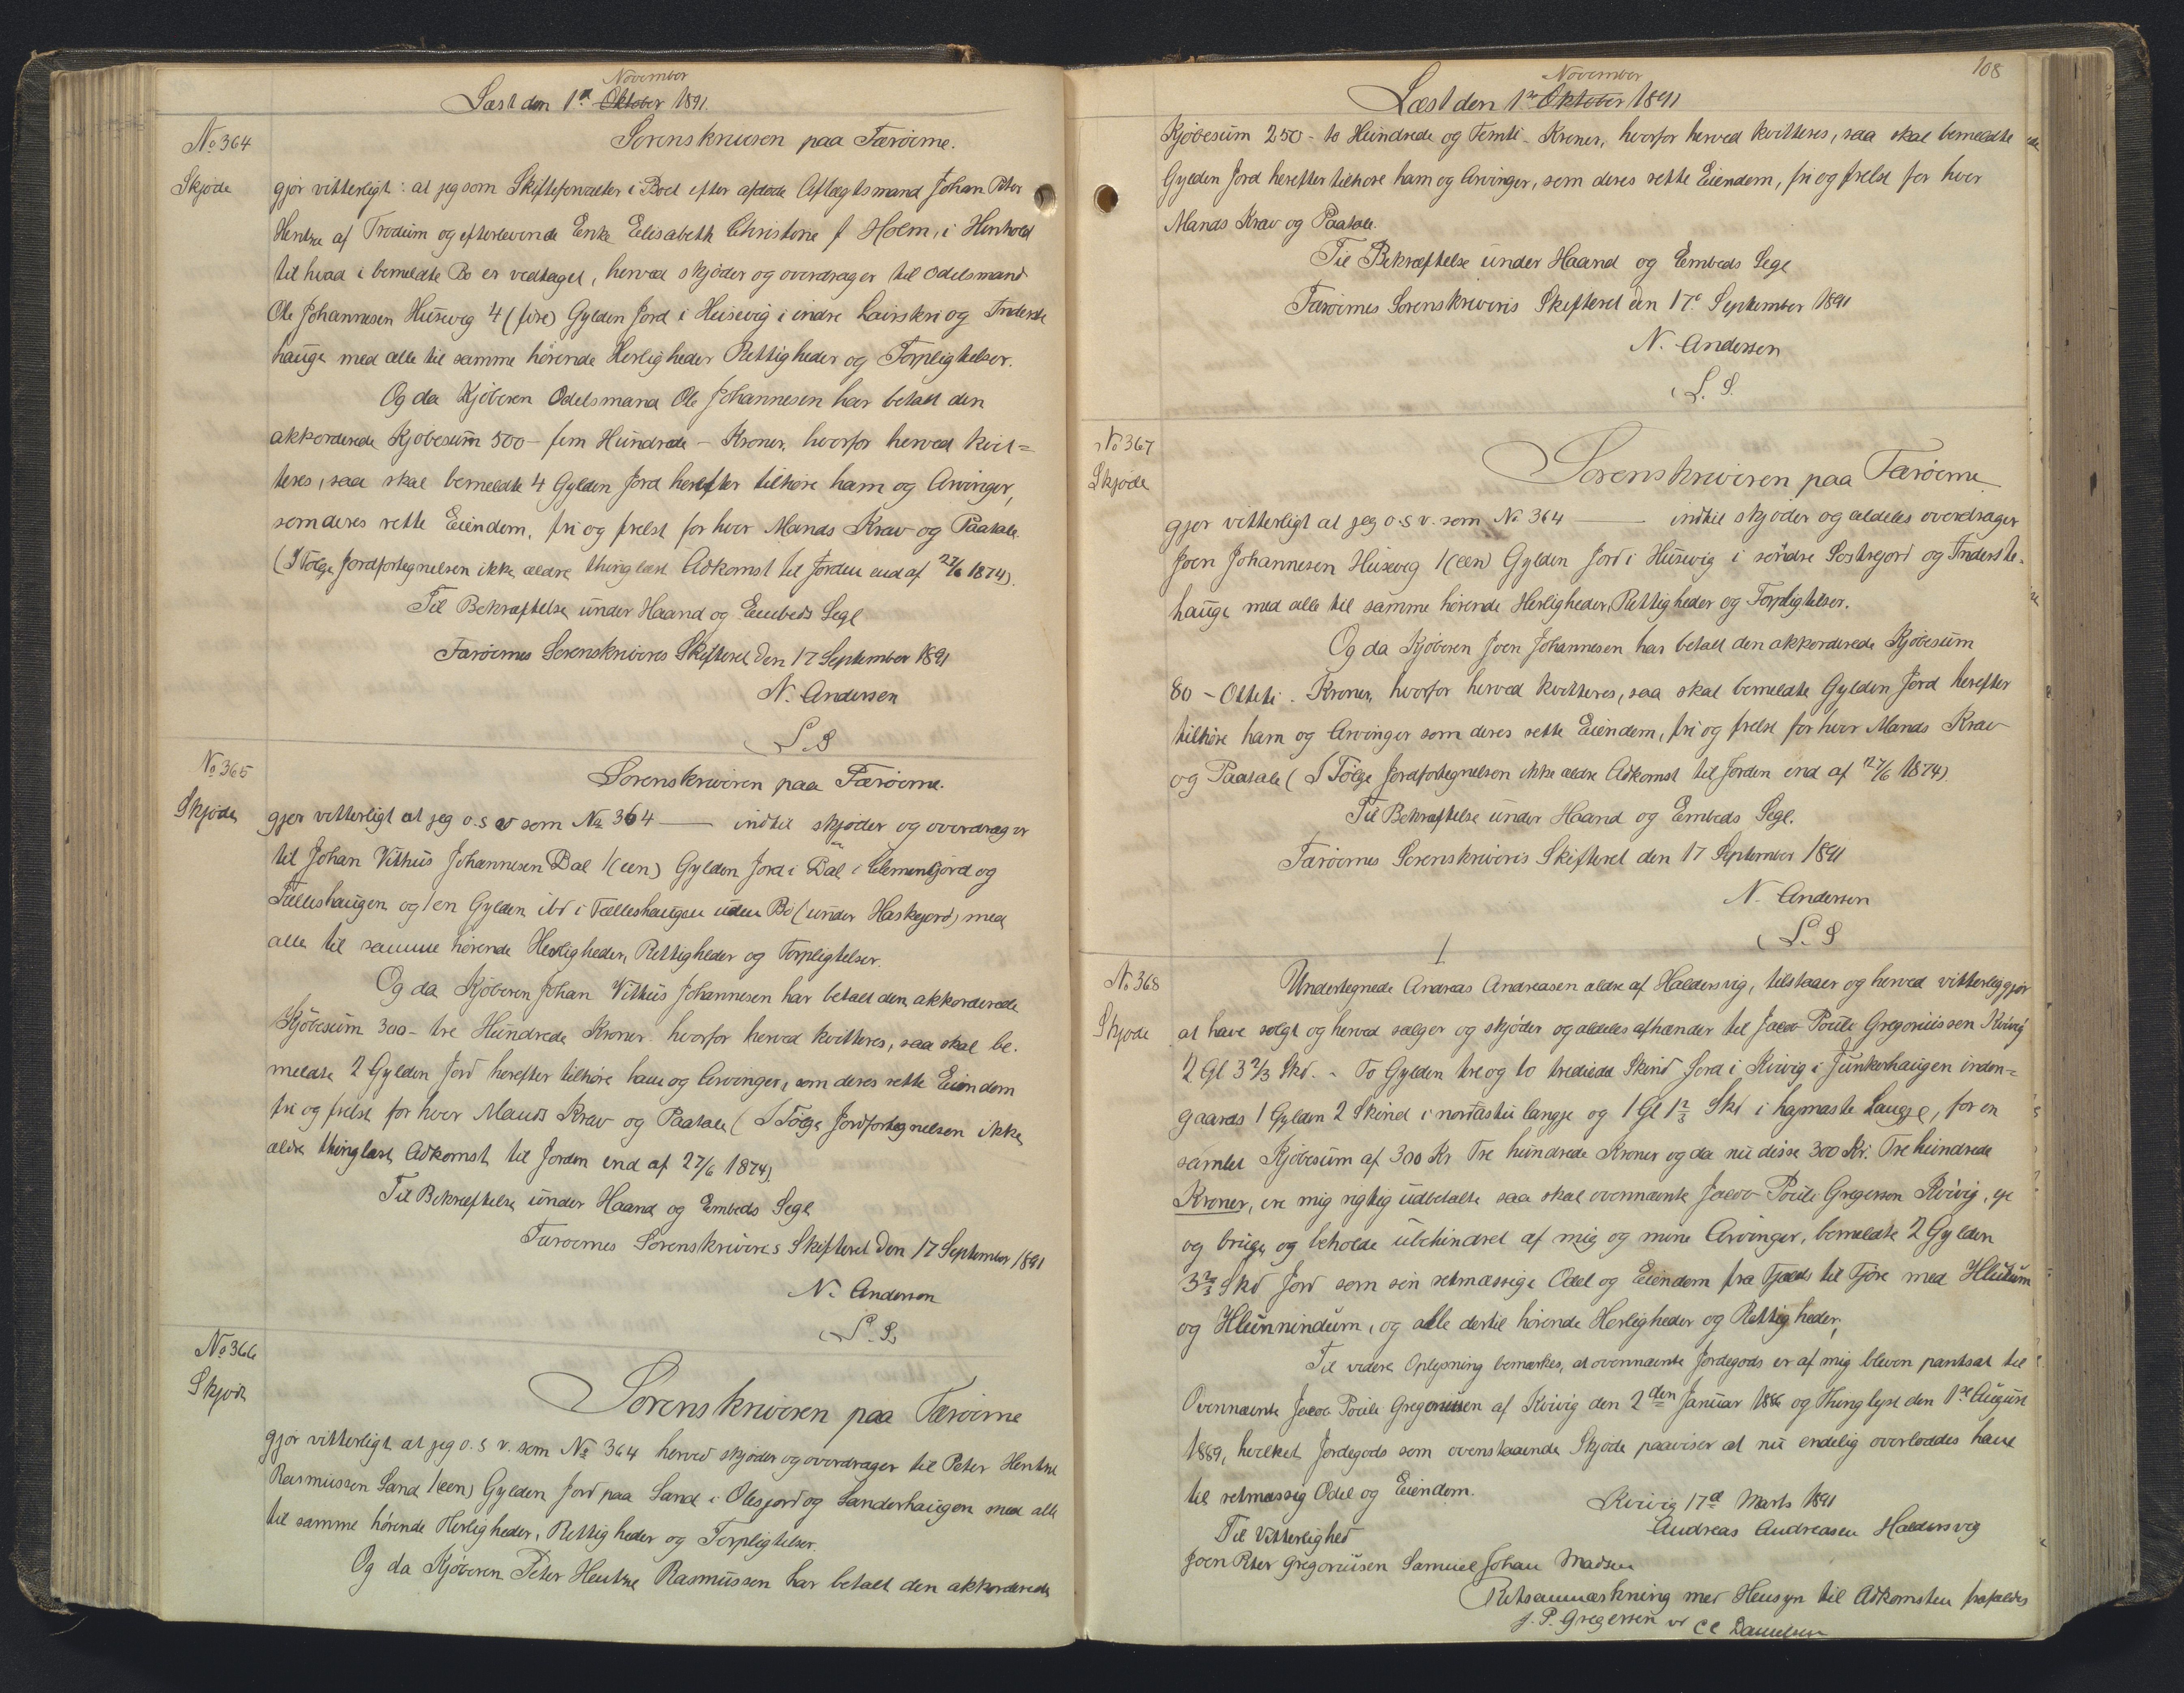 November
Læst den 1ᵈ Oktober 1891.
No 364
Skjøde
Sorenskriveren paa Færøerne.
gjør vitterligt: at jeg som Skifteforvalter i Boet efter afdøde Aftægtsmand Johan Peter
Hentze af Trødum og efterlevende Enke Elisabeth Christine f Holm, i Henhold
til hvad i bemeldte Bo er vedtaget, herved skjøder og overdrager til Odelsmand
Ole Johannesen Húsevig 4 (fire) Gylden Jord i Húsevig i indre Lairskri og Inderste
haúge med alle til samme hørende Herligheder Rettigheder og Forpligtelser.
Og da Kjøberen Odelsmand Ole Johannesen har betalt den
akkorderede Kjøbesúm 500 - fem Húndrede - Kroner, hvorfor herved kvit=
teres, saa skal bemeldte 4 Gylden Jord herefter tilhøre ham og Arvinger,
som deres rette Eiendom, fri og frelst for hver Mands Krav og Paatale.
(I Følge Jordfortegnelsen ikke ældre thinglæst Adkomst til Jorden end af 27/6 1874).
Til Bekræftelse únder Haand og Embeds Segl
Færøernes Sorenskriveris Skifteret den 17 September 1891
N. Andersen
L. S
No 365
Skjøde
Sorenskriveren paa Færøerne.
gjør vitterligt at jeg o.s v som No 364 — indtil skjøder og overdrager
til Johan Vithús Johannesen Dal 1 (een) Gylden Jord i Dal i Clemensjord og
Fælleshaúgen og 1 en Gylden ibd i Fælleshaúgen uden Bø (únder Haskejord) med
alle til samme hørende Herligheder, Rettigheder og Forpligtelser.
Og da Kjøberen Johan Vithús Johannesen har betalt den akkorderede
Kjøbesúm 300 - tre Húndrede Kroner. hvorfor herved kvitteres, saa skal be.
meldte 2 Gylden Jord herefter tilhøre ham og Arvinger, som deres rette Eiendom
fri og frelst for hver Mands Krav og Paatale (I Følge Jordfortegnelsen ikke
ældre thinglæst Adkomst til Jorden end af 27/6 1874).
Til Bekræftelse únder Haand og Embeds Segl
Færøernes Sorenskriveres Skifteret den 17 September 1891
N. Andersen
L. S.
No 366
Skjøde
Sorenskriveren paa Færøerne
gjør vitterligt at jeg o. s v. som No 364 herved skjøder og overdrager til Peter Hentze
Rasmússen Sand 1 (een) Gylden Jord paa Sand i Olesjord og Sanderhaúgen med alle
til samme hørende Herligheder, Rettigheder og Forpligtelser.
Og da Kjøberen Peter Hentze Rasmússen har betalt den akkorderede
108
November
Læst den 1ᵗᵉ Oktober 1891
Kjøbesúm 250 - to Húndrede og Femti - Kroner, hvorfor herved kvitteres, saa skal bemeldte
Gylden Jord herefter tilhøre ham og Arvinger, som deres rette Eiendom, fri og frelst for hver
Mands Krav og Paatale.
Til Bekræftelse únder Haand og Embeds Segl
Færøernes Sorenskriveris Skifteret den 17ᵈ September 1891
N. Andersen
L. S.
No 367
Skjøde
Sorenskriveren paa Færøerne
gjør vitterligt at jeg o. s v. som No 364 — indtil skjøder og aldeles overdrager
Joen Johannesen Húsevig 1 (een) Gylden Jord i Húsevig i søndre Sostrejord og Inderste.
haúge med alle til samme hørende Herligheder, Rettigheder og Forpligtelser.
Og da Kjøberen Joen Johannesen har betalt den akkorderede Kjøbesúm
80 - Otteti - Kroner, hvorfor herved kvitteres, saa skal bemeldte Gylden Jord herefter
tilhøre ham og Arvinger som deres rette Eiendom, fri og frelst for hver Mands Krav
og Paatale (I Følge Jordfortegnelsen ikke ældre Adkomst til Jorden end af 27/6 1874).
Til Bekræftelse únder Haand og Embeds Segl.
Færøernes Sorenskriveris Skifteret den 17 September 1891
N. Andersen
L. S
No 368
Skjøde
Undertegnede Andreas Andreasen ældre af Haldersvig, tilstaaer og herved vitterliggjør
at have solgt og herved sælger og skjøder og aldeles afhænder til Jacob Poúle Gregoriússen Kvivig
2 Gl 3⅔ Skd. - To Gylden tre og to trediedel Skind Jord i Kvivig i Júnkerhaúgen inden=
gaards 1 Gylden 2 Skind i nordastú langje og 1 Gl 1⅔ Skd i hajmaste Laugje, for en
samlet Kjøbesúm af 300 Kr Tre húndrede Kroner og da nú disse 300 Kr. Tre húndrede
Kroner, ere mig rigtig údbetalte saa skal ovennævnte Jacob Poúle Gregersen Kvivig, eje
og brúge og beholde úbehindret af mig og mine Arvinger, bemeldte 2 Gylden
3⅔ Skd Jord som sin retmæssige Odel og Eiendom fra Fjælds til Fjøre med Hlútúm
og Hlúnnindúm, og alle dertil hørende Herligheder og Rettigheder,
Til videre Oplysning bemærkes, at ovennævnte Jordegods er af mig bleven pantsat til
Ovennævnte Jacob Poúle Gregoriússen af Kvivig den 2den Janúar 1886 og Thinglyst den 1ste Aúgúst
1889, hvilket Jordegods som ovenstaaende Skjøde paaviser at nú endelig overlodes ham
til retmæssig Odel og Eiendom.
Kvivig 17ᵈ Marts 1891
Andreas Andreasen Haldersvig
Til Vitterlighed
Joen Peter Gregoriúsen Samuel Johan Madsen
Retsanmærkning med Hensyn til Adkomsten frafaldes
J. P. Gregersen v C C Danielsen